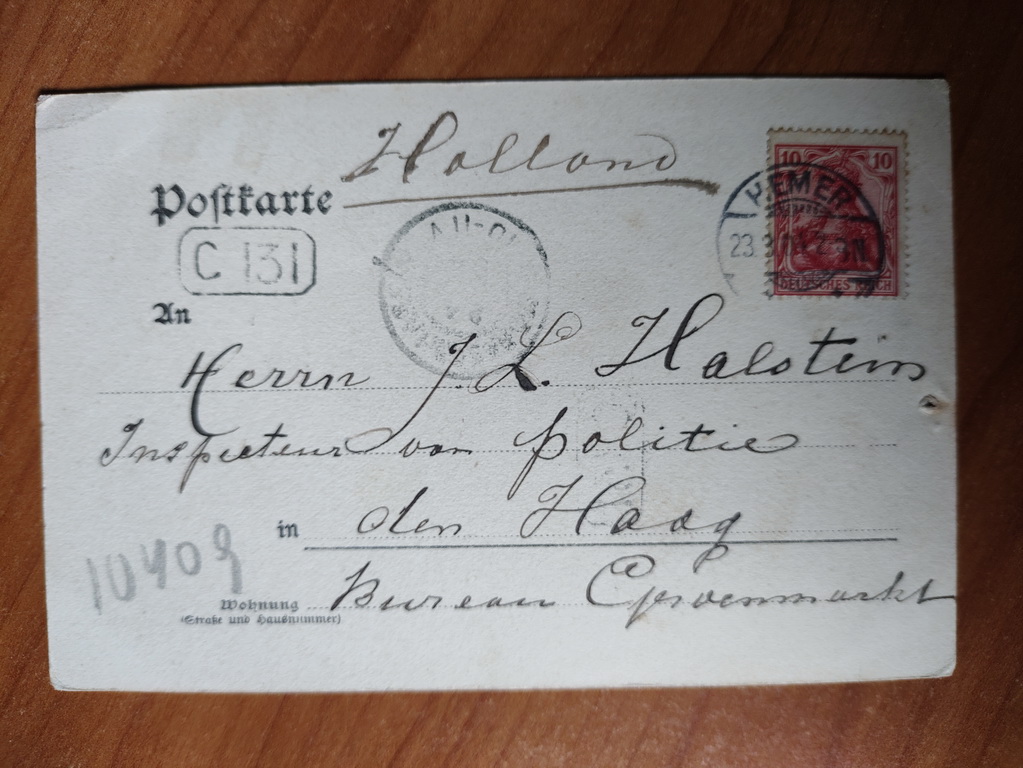 Holland
Postkarte
C 131
10 10
DEUTSCHES REICH
HEMER
An
Herrn J. L. Halstein
Inspecteur van politie
in den Haag
Bureau Groenmarkt
Wohnung
(Straße und Hausnummer)
10409